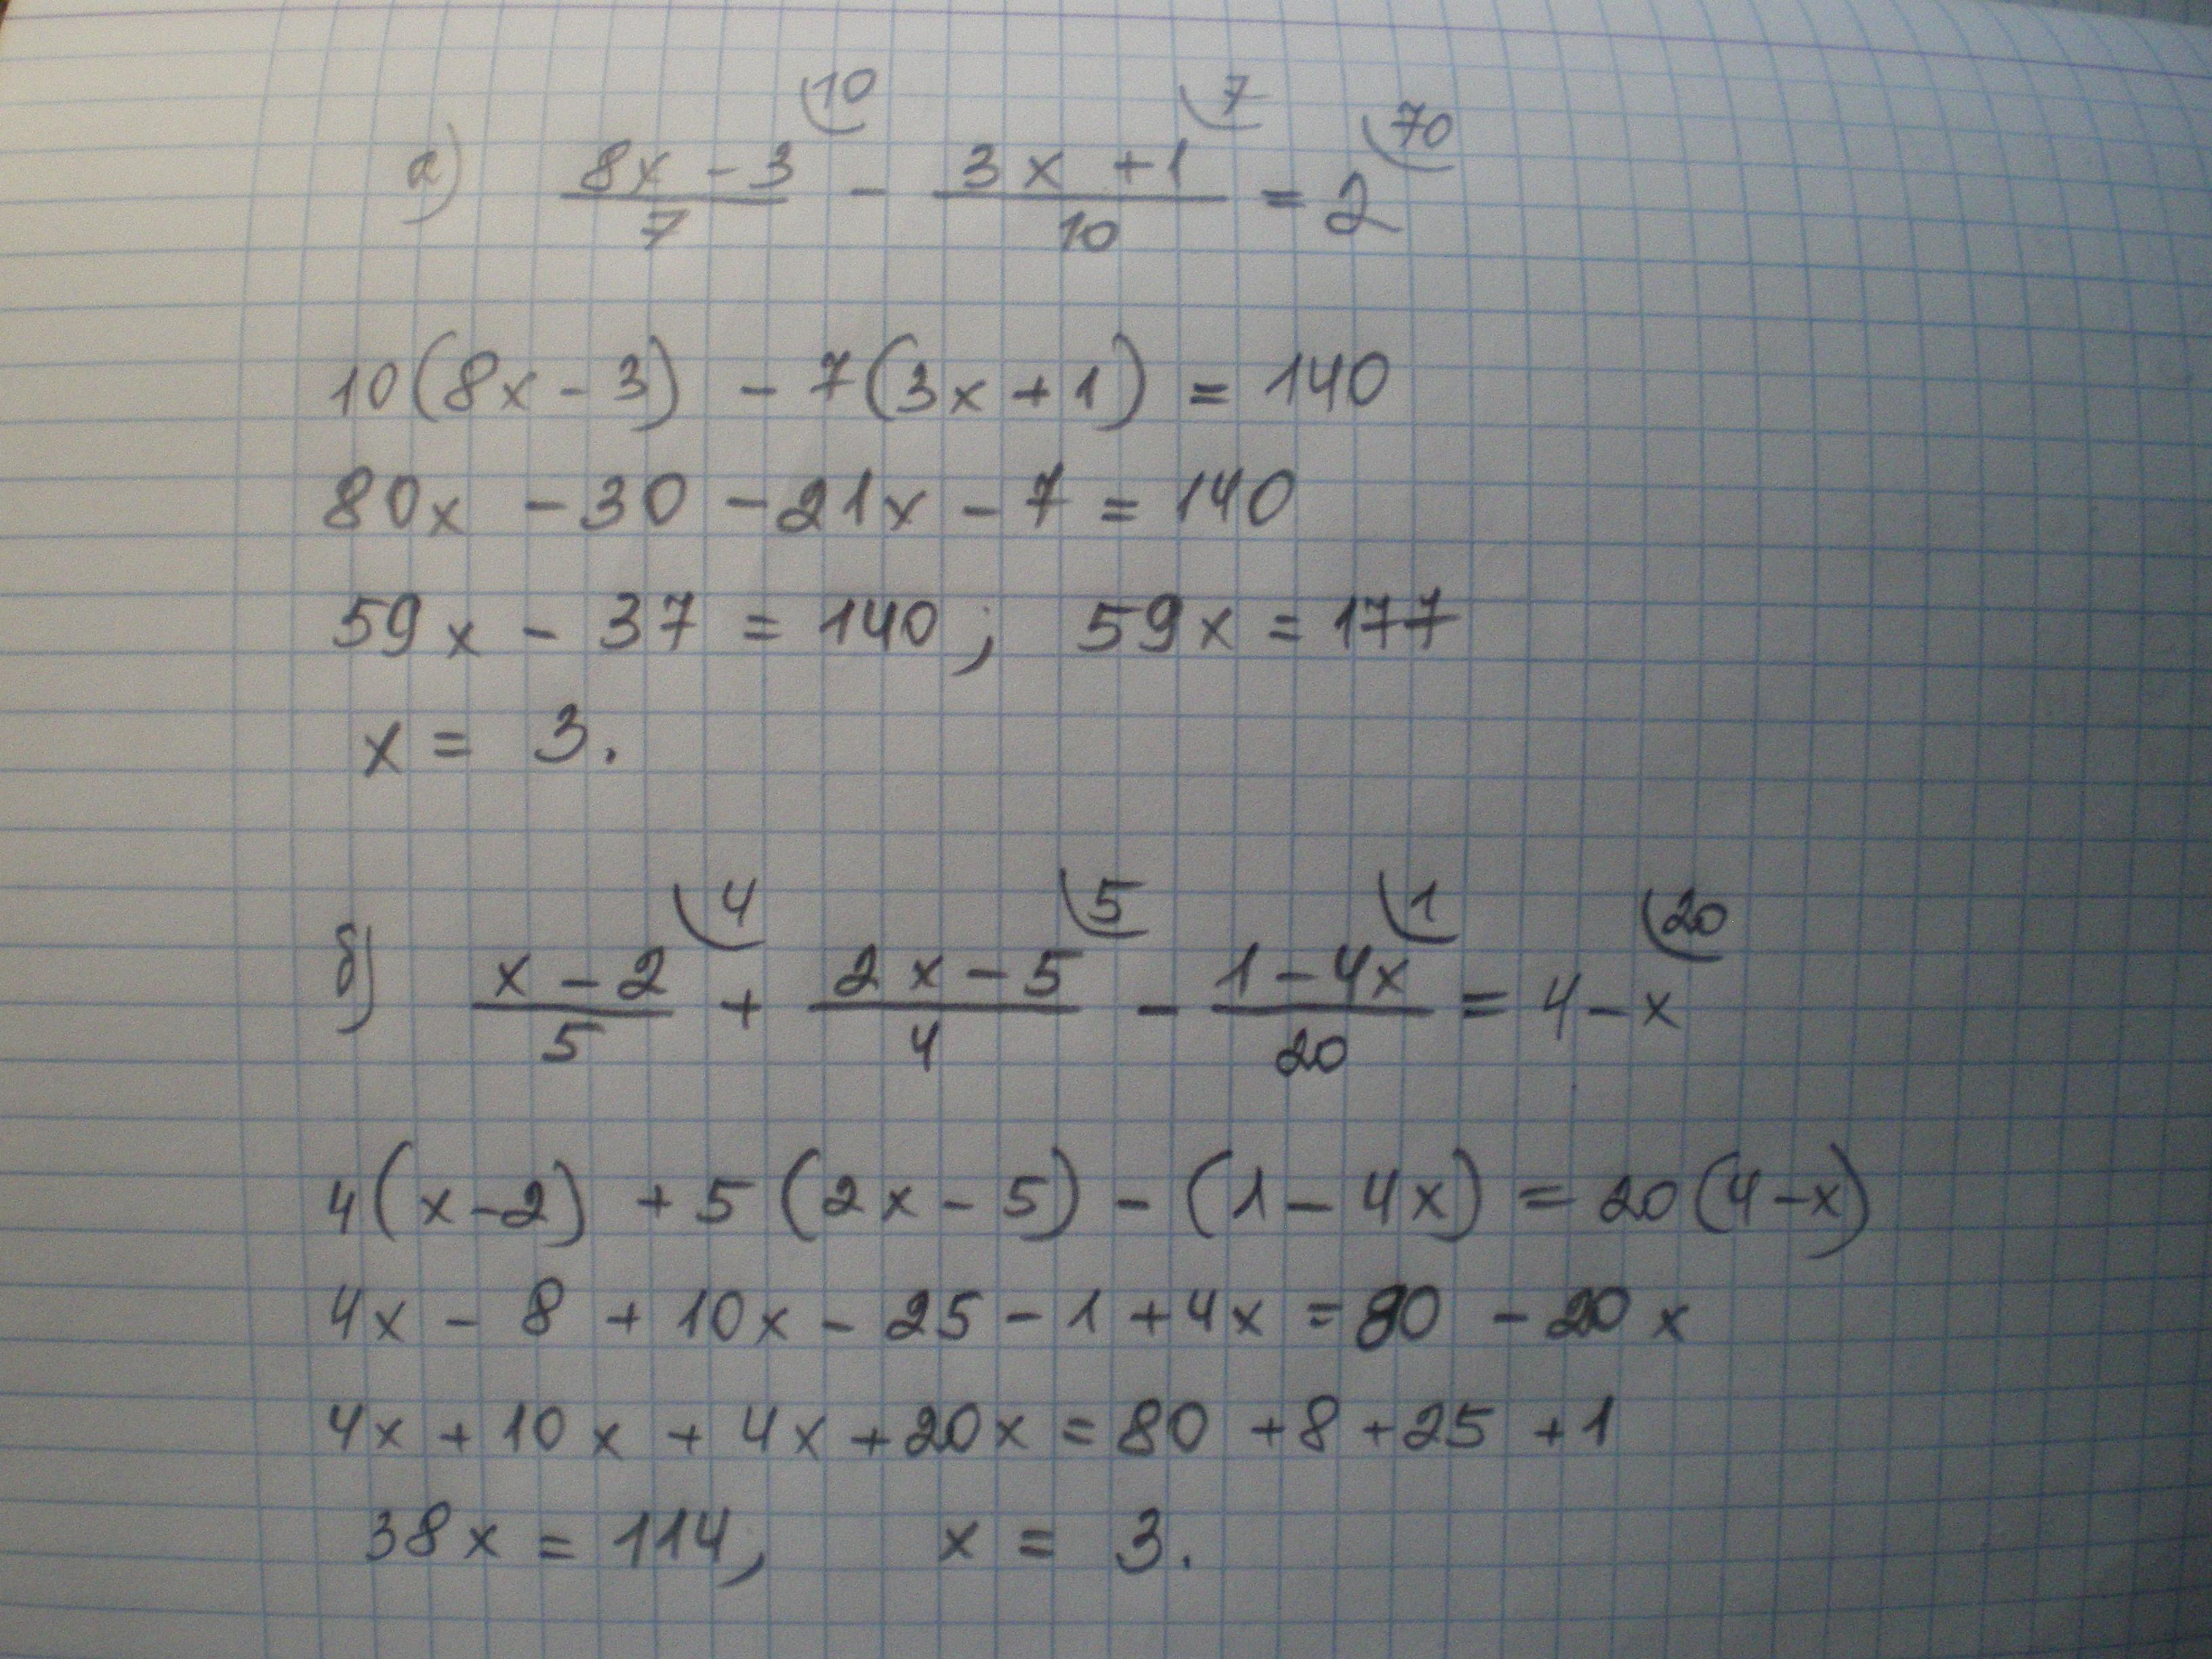 а) (8x - 3)/7 \10 - (3x + 1)/10 \7 = 2 \70
10(8x - 3) - 7(3x + 1) = 140
80x - 30 - 21x - 7 = 140
59x - 37 = 140; 59x = 177
x = 3.
б) (x - 2)/5 \4 + (2x - 5)/4 \5 - (1 - 4x)/20 \1 = 4 - x \20
4(x - 2) + 5(2x - 5) - (1 - 4x) = 20(4 - x)
4x - 8 + 10x - 25 - 1 + 4x = 80 - 20x
4x + 10x + 4x + 20x = 80 + 8 + 25 + 1
38x = 114, x = 3.